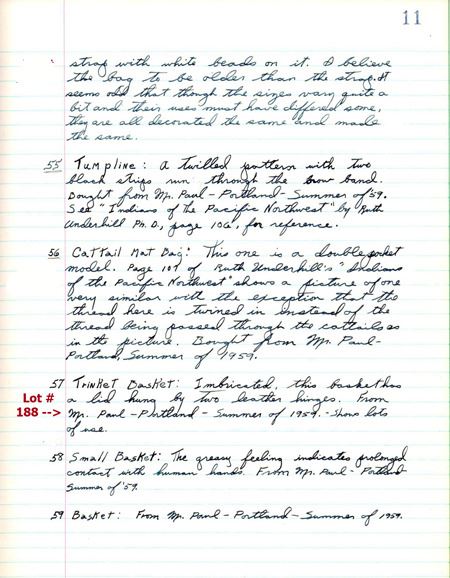 11
strap with white beads on it. I believe
the bag to be older than the strap. It
seems odd that though the sizes vary quite a
bit and their uses must have differed some,
they are all decorated the same and made
the same.
55 Tumpline: A twilled pattern with two
black strips run through the brow band.
Bought from Mr. Paul - Portland - Summer of '59.
See "Indians of the Pacific Northwest" by Ruth
Underhill Ph. D, page 106, for reference.
56 Cattail Mat Bag: This one is a double pocket
model. Page 107 of Ruth Underhill's "Indians
of the Pacific Northwest" shows a picture of one
very similar with the exception that the
thread here is twined in instead of the
thread being passed through the cattails as
in the picture. Bought from Mr. Paul -
Portland, Summer of 1959.
57 Trinket Basket: Imbricated, this basket has
Lot #
a lid hung by two leather hinges. From
188 --> Mr. Paul - Portland - Summer of 1959. - Shows lots
of use.
58 Small Basket: The greasy feeling indicates prolonged
contact with human hands. From Mr. Paul - Portland
Summer of '59.
59 Basket: From Mr. Paul - Portland - Summer of 1959.